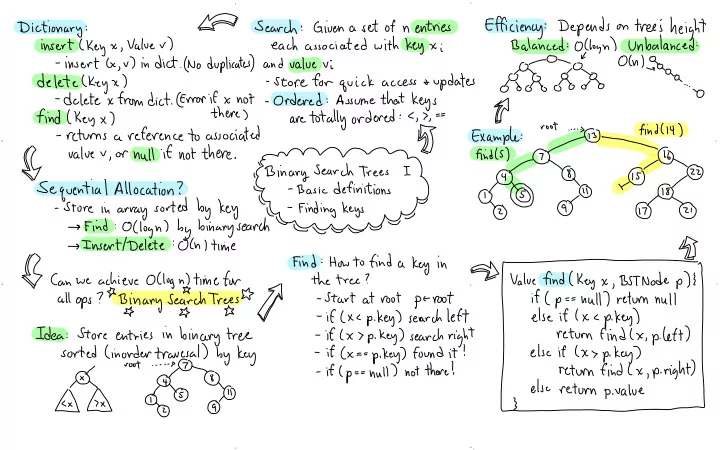 Search: Given a set of n entries
each associated with key xi
and value vi
- Store for quick access + updates
- Ordered: Assume that keys
are totally ordered: <, >, ==
Dictionary:
insert (Key x, Value v)
- insert (x,v) in dict. (No duplicates)
delete (Key x)
- delete x from dict. (Error if x not
there)
find (Key x)
- returns a reference to associated
value v, or null if not there.
Sequential Allocation?
- Store in array sorted by key
→ Find: O(log n) by binary search
→ Insert/Delete: O(n) time
Can we achieve O(log n) time for
all ops? Binary Search Trees
Idea: Store entries in binary tree
sorted (inorder traversal) by key
x
<x >x
root
7
4 8
1 5 11
2 9
Binary Search Trees I
- Basic definitions
- Finding keys
Find: How to find a key in
the tree?
- Start at root p←root
- if (x < p.key) search left
- if (x > p.key) search right
- if (x == p.key) found it!
- if (p == null) not there!
Value find (Key x, BSTNode p) {
if (p == null) return null
else if (x < p.key)
return find (x, p.left)
else if (x > p.key)
return find (x, p.right)
else return p.value
}
Example:
root
13
find(14)
find(5)
7 16
4 8 15 22
1 5 11 18
2 9 17 21
Efficiency: Depends on tree's height
Balanced: O(log n) Unbalanced:
O(n)